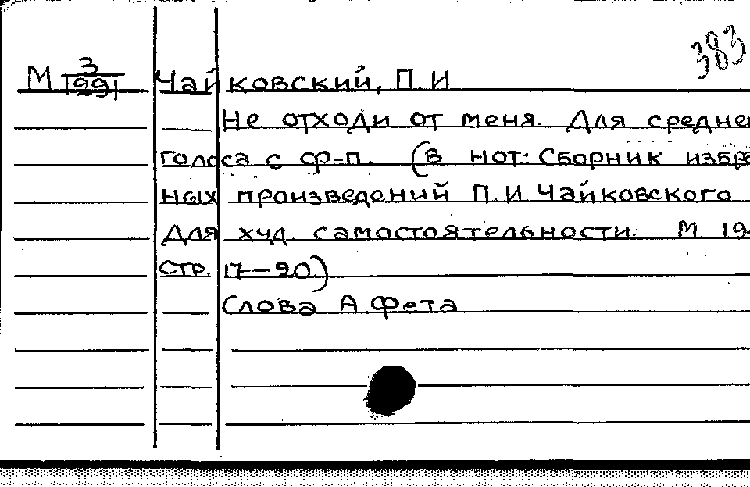 383
М 3/1991 Чайковский, П. И
Не отходи от меня. Для средне
голоса с ф-п. (в нот: Сборник избр
ных произведений П. И. Чайковского
Для худ. самостоятельности. М 19
стр. 17-20)
Слова А. Фета